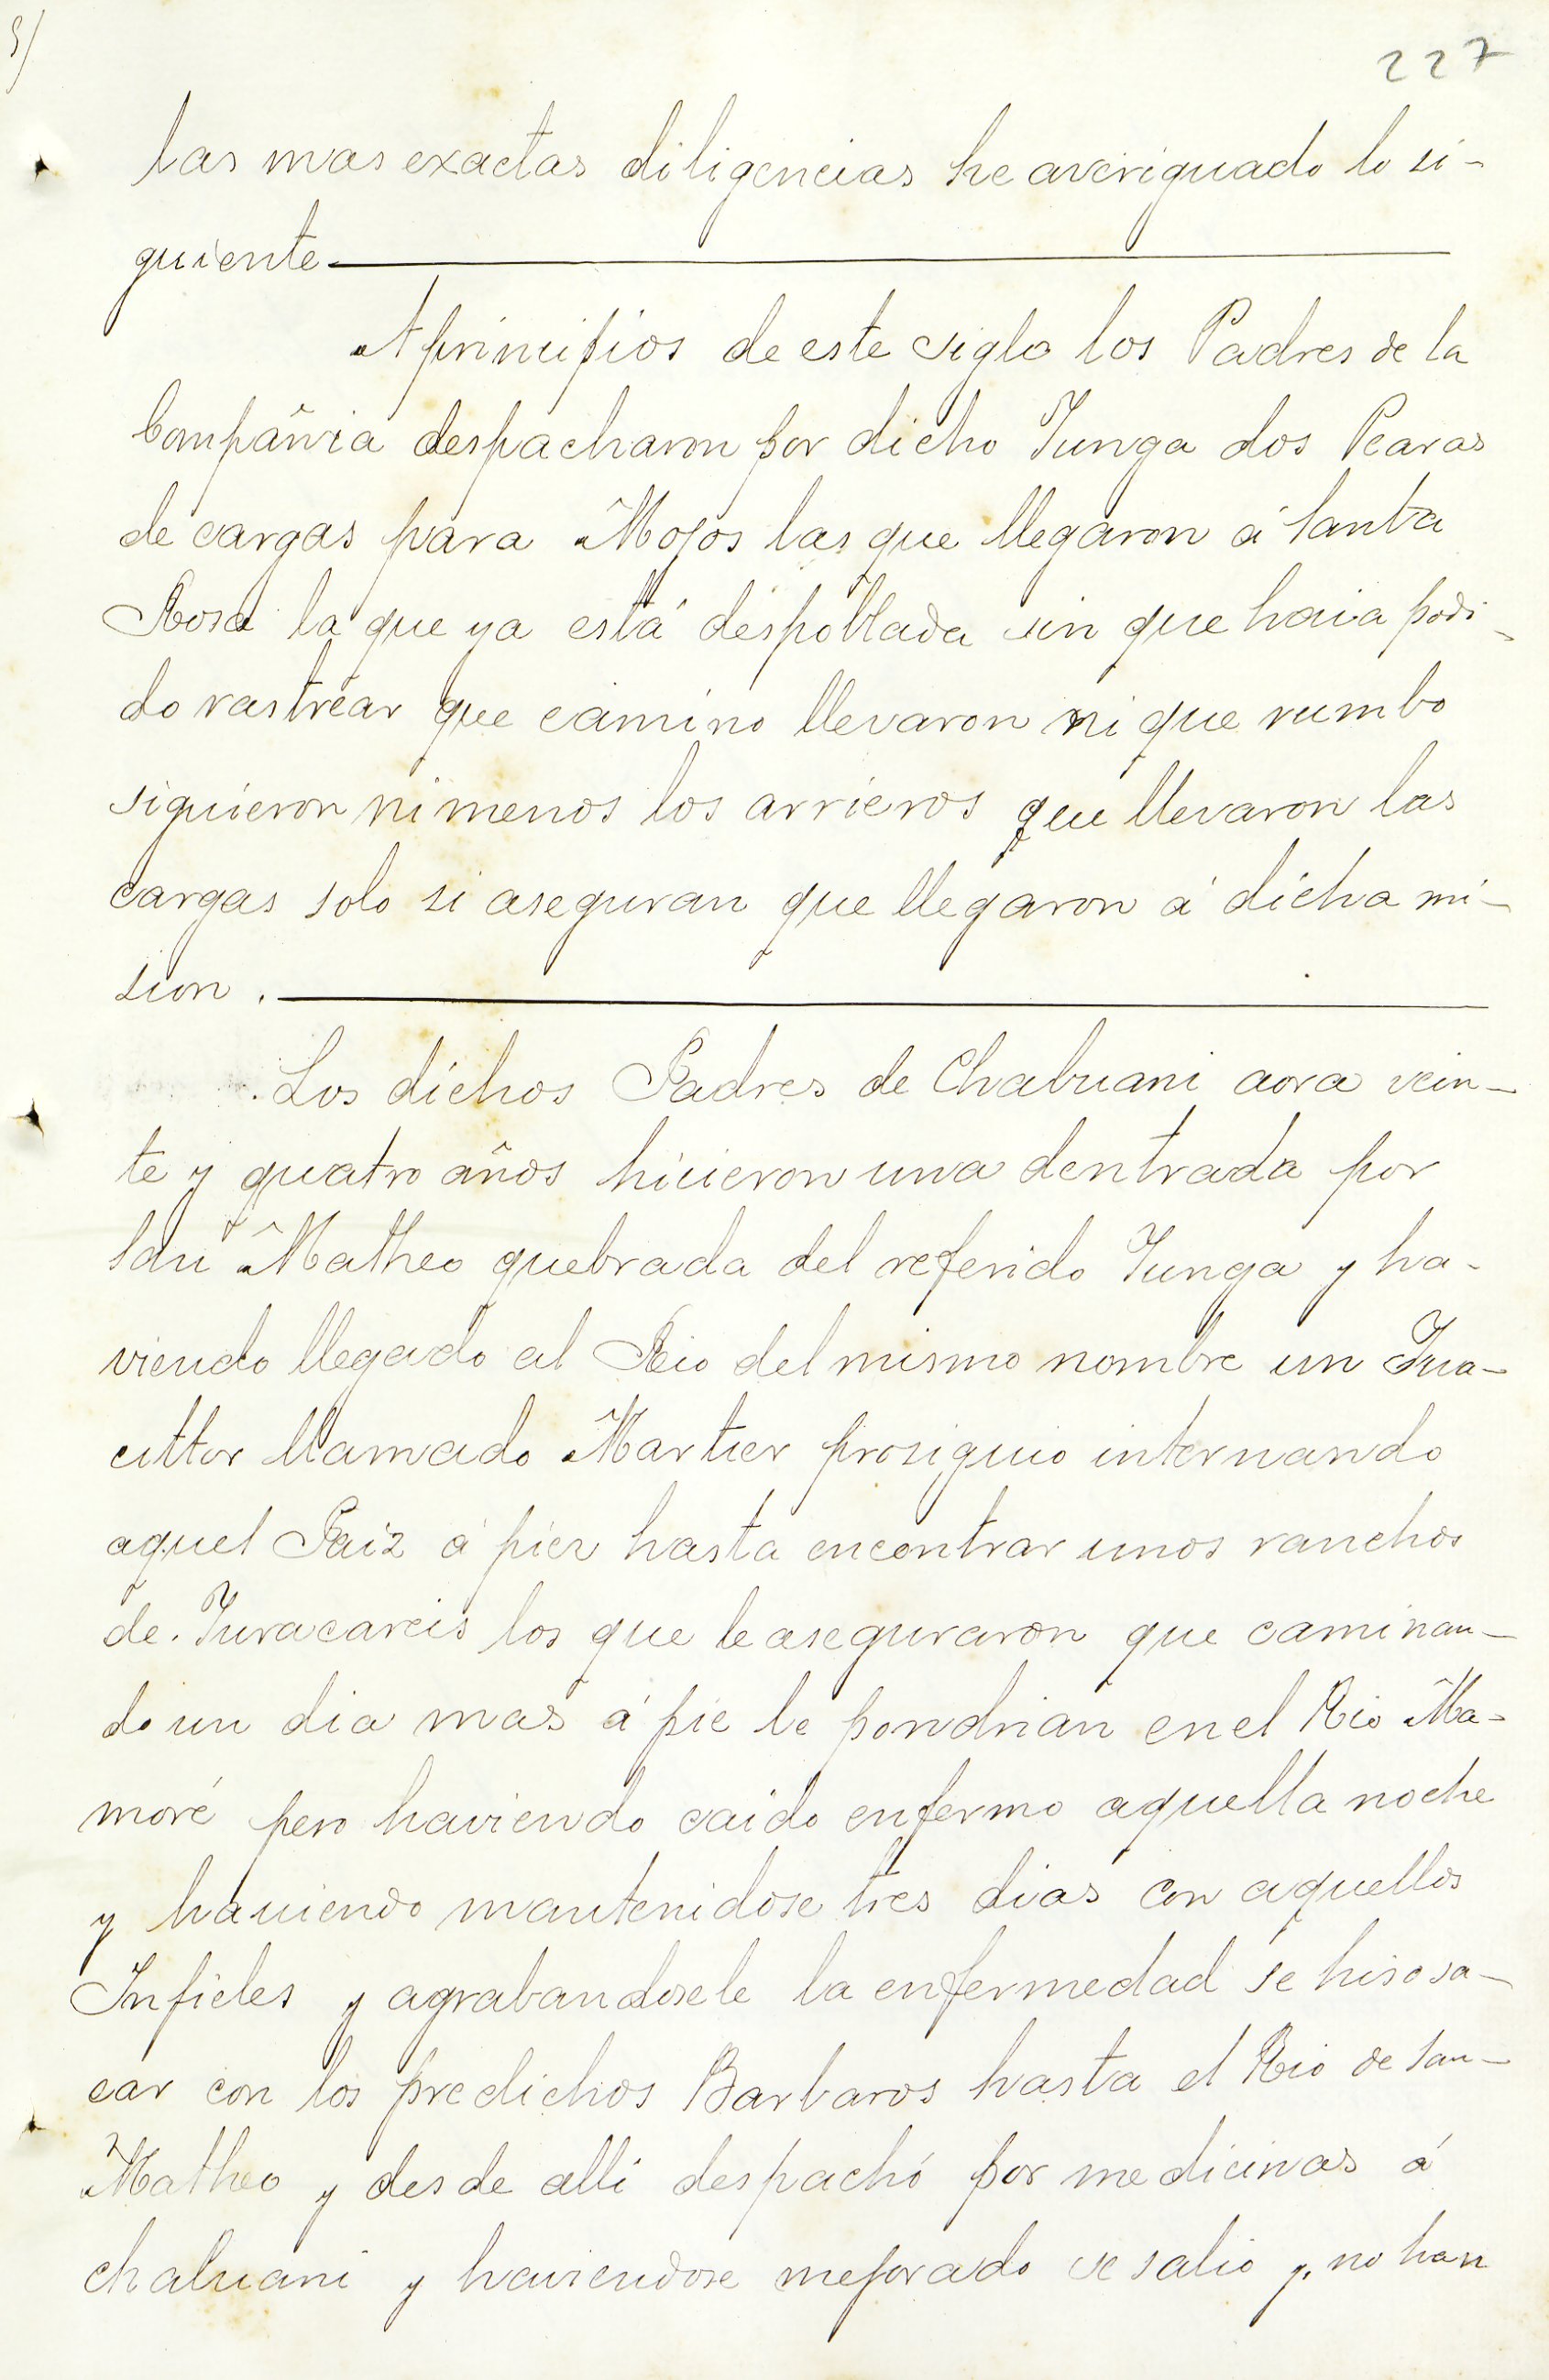 227
las mas exactas diligencias he averiguado lo si-
guiente
A principios de este siglo los Padres de la
Compañia despacharon por dicho Yunga dos Pearas
de cargas para Mojos las que llegaron á Santa
Rosa la que ya está despoblada sin que haia podi-
do rastrear que camino llevaron ni que rumbo
siguieron ni menos los arrieros que llevaron las
cargas solo si aseguran que llegaron á dicha mi-
sion.
Los dichos Padres de Chaluani aora vein-
te y quatro años hicieron una dentrada por
San Matheo quebrada del referido Yunga y ha-
viendo llegado al Rio del mismo nombre un
llamado prosiguio internando
aquel Paiz á piez hasta encontrar unos ranchos
de Yuracareis los que le aseguraron que caminan-
do un dia mas á pie le pondrian en el Rio Ma-
moré pero haviendo caido enfermo aquella noche
y haviendo mantenidose tres dias con aquellos
Infieles y agrabandosele la enfermedad se hiso sa-
car con los predichos Barbaros hasta el Rio de San-
Matheo y desde alli despachó por medicinas á
chaluani y haviendose mejorado se salio y, no han